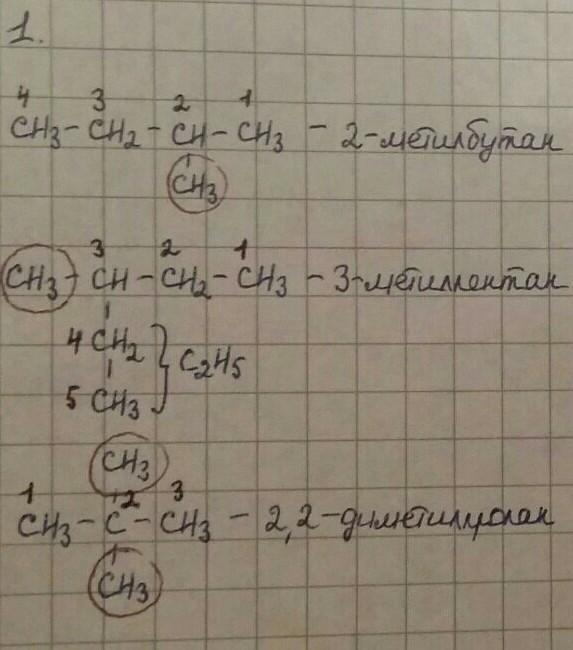 1.
4 3 2 1
CH3 - CH2 - CH - CH3 - 2-метилбутан
CH3
3 2 1
CH3 - CH - CH2 - CH3 - 3-метилпентан
4 CH2
C2H5
5 CH3
CH3
1 2 3
CH3 - C - CH3 - 2,2-диметилпропан
CH3